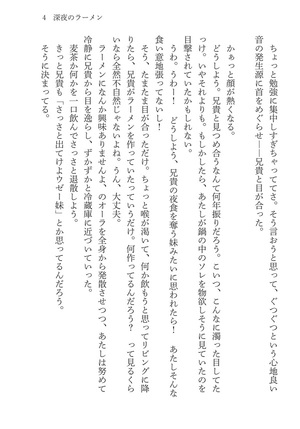 4　深夜のラーメン
ちょっと勉強に集中しすぎちゃっててさ。そう言おうと思って、ぐつぐつという心地良い
音の発生源に首をめぐらせ――兄貴と目が合った。
かぁっと顔が熱くなる。
どうしよう。兄貴と見つめ合うなんて何年振りだろう。こいつ、こんなに濁った目してた
っけ。いやそれよりも。もしかしたら、あたしが鍋の中のソレを物欲しそうに見ていたのを
目撃されていたかもしれない。
うわ。うわー！　どうしよう、兄貴の夜食を奪う妹みたいに思われたら！　あたしそんな
食い意地張ってないし！
そう、たまたま目が合っただけ。ちょっと喉が渇いて、何か飲もうと思ってリビングに降
りたら、兄貴がラーメンを作っていたっていうだけ。何作ってるんだろう？　って見るくら
いなら全然不自然じゃないよね。うん、大丈夫。
ラーメンになんか興味ありませんよ、のオーラを全身から発散させつつ、あたしは努めて
冷静に兄貴から目を逸らし、ずかずかと冷蔵庫に近づいていった。
麦茶か何かを一口飲んでさっさと退散しよう。
きっと兄貴も「さっさと出てけよウゼー妹」とか思ってるんだろう。
そうに決まってる。